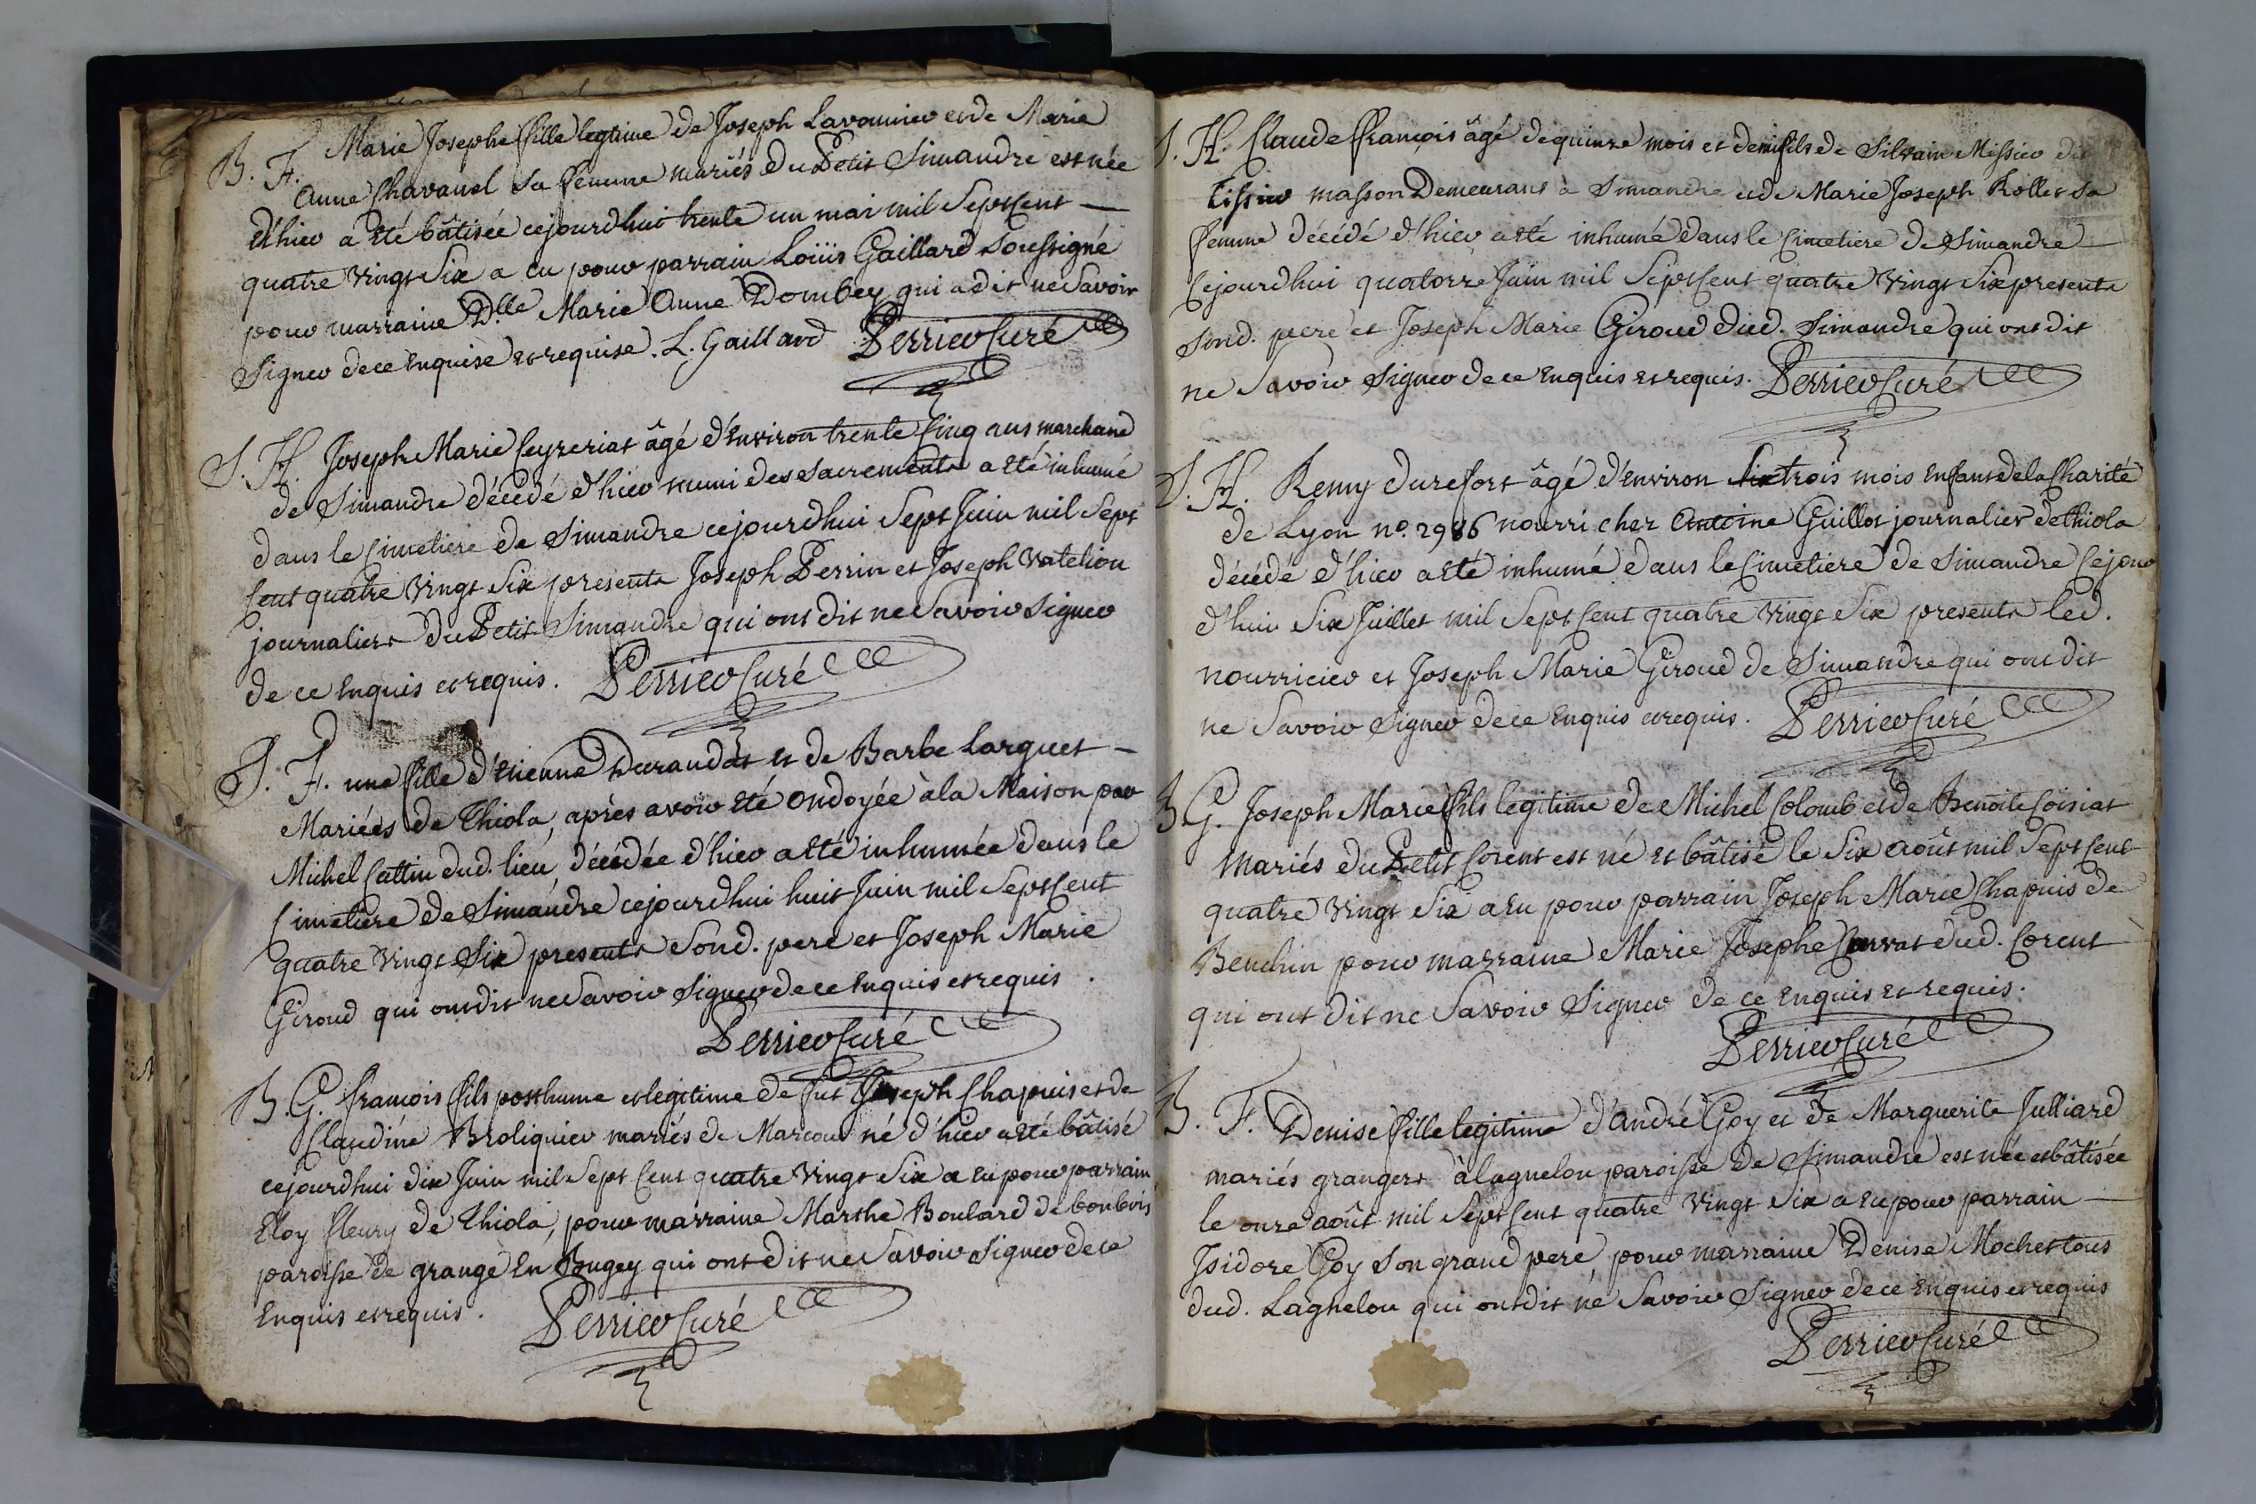 B. F. Marie Josephe fille legtime de Joseph Lavounier et de Marie
Anne Chavanel sa femme mariés du Petit Simandre est née
d'hier a été bâtisée cejourdhui trente un mai mil Sept Cent —
quatre vingt Six a eu pour parrain Loüis Gaillard Soussigné
pour marraine D.lle Marie Anne Dombey qui a dit ne Savoir
Signer de ce Enquise et requise. L. Gaillard Perrier Curé
S. H. Joseph Marie Ceyzeriat âgé d'Environ trente Cinq ans marchand
de Simandre décédé d'hier muni des Sacrements a été inhumé
dans le Cimetiere de Simandre cejourdhui Sept Juin mil Sept
Cent quatre vingt Six presents Joseph Perrin et Joseph Vatelion
journaliers du Petit Simandre qui ont dit ne Savoir Signer
de ce Enquis et requis. Perrier Curé
S. F. une fille d'Etienne Durandet et de Barbe Larguet —
Mariés de Thiola, aprés avoir été Ondoyée à la Maison par
Michel Cattin dud. lieu, décédée d'hier a été inhumée dans le
Cimetiere de Simandre cejourdhui huit Juin mil Sept Cent
quatre vingt Six presents Sond. pere et Joseph Marie
Giroud qui ont dit ne Savoir Signer de ce Enquis et requis.
Perrier Curé
B. G. francois fils posthume et legitime de fut Joseph Chapuis et de
Claudine Broliquier mariés de Marcou né d'hier a été bâtisé
cejourdhui dix Juin mil Sept Cent quatre vingt Six a eu pour parrain
Eloy fleury de Thiola, pour marraine Marthe Boulard de bonbois
paroisse de grange En Bougey qui ont dit ne Savoir Signer de ce
Enquis et requis. Perrier Curé
S. H. Claude francois âgé de quinze mois et demi fils de Silvain Missier dit
Tissier masson Demeurant à Simandre et de Marie Joseph Rollet Sa
femme décédé d'hier a été inhumé dans le Cimetiere de Simandre —
Cejourdhui quatorze Juin mil Sept Cent quatre vingt Six presents
Sond. pere et Joseph Marie Giroud dud. Simandre qui ont dit
ne Savoir Signer de ce Enquis et requis. Perrier Curé
S. H. Remy Durefort âgé d'Environ trois mois Enfant de la Charité
de Lyon no. 2986 nourri chez Antoine Guillot journalier de Thiola
décédé d'hier a été inhumé dans le Cimetiere de Simandre Cejour
d'hui Six Juillet mil Sept Cent quatre vingt Six presents led.
nourricier et Joseph Marie Giroud de Simandre qui ont dit
ne Savoir Signer de ce Enquis et requis. Perrier Curé
B. G. Joseph Marie fils legitime de Michel Colomb et de Benoite Coisiat
mariés du Petit Corent est né et bâtisé le Six août mil Sept Cent
quatre vingt Six a eu pour parrain Joseph Marie Chapuis de
Beuchin pour marraine Marie Josephe Carvat dud. Corent
qui ont dit ne Savoir Signer de ce Enquis et requis.
Perrier Curé
B. F. Denise fille legitime d'andré Goy et de Marguerite Julliard
mariés grangers à lagnelou paroisse de Simandre est née et bâtisée
le onze août mil Sept Cent quatre vingt Six a eu pour parrain —
Isidore Goy Son grand pere pour marraine Denise Mochet tous
dud. Lagnelou qui ont dit né Savoir Signer de ce Enquis et requis
Perrier Curé